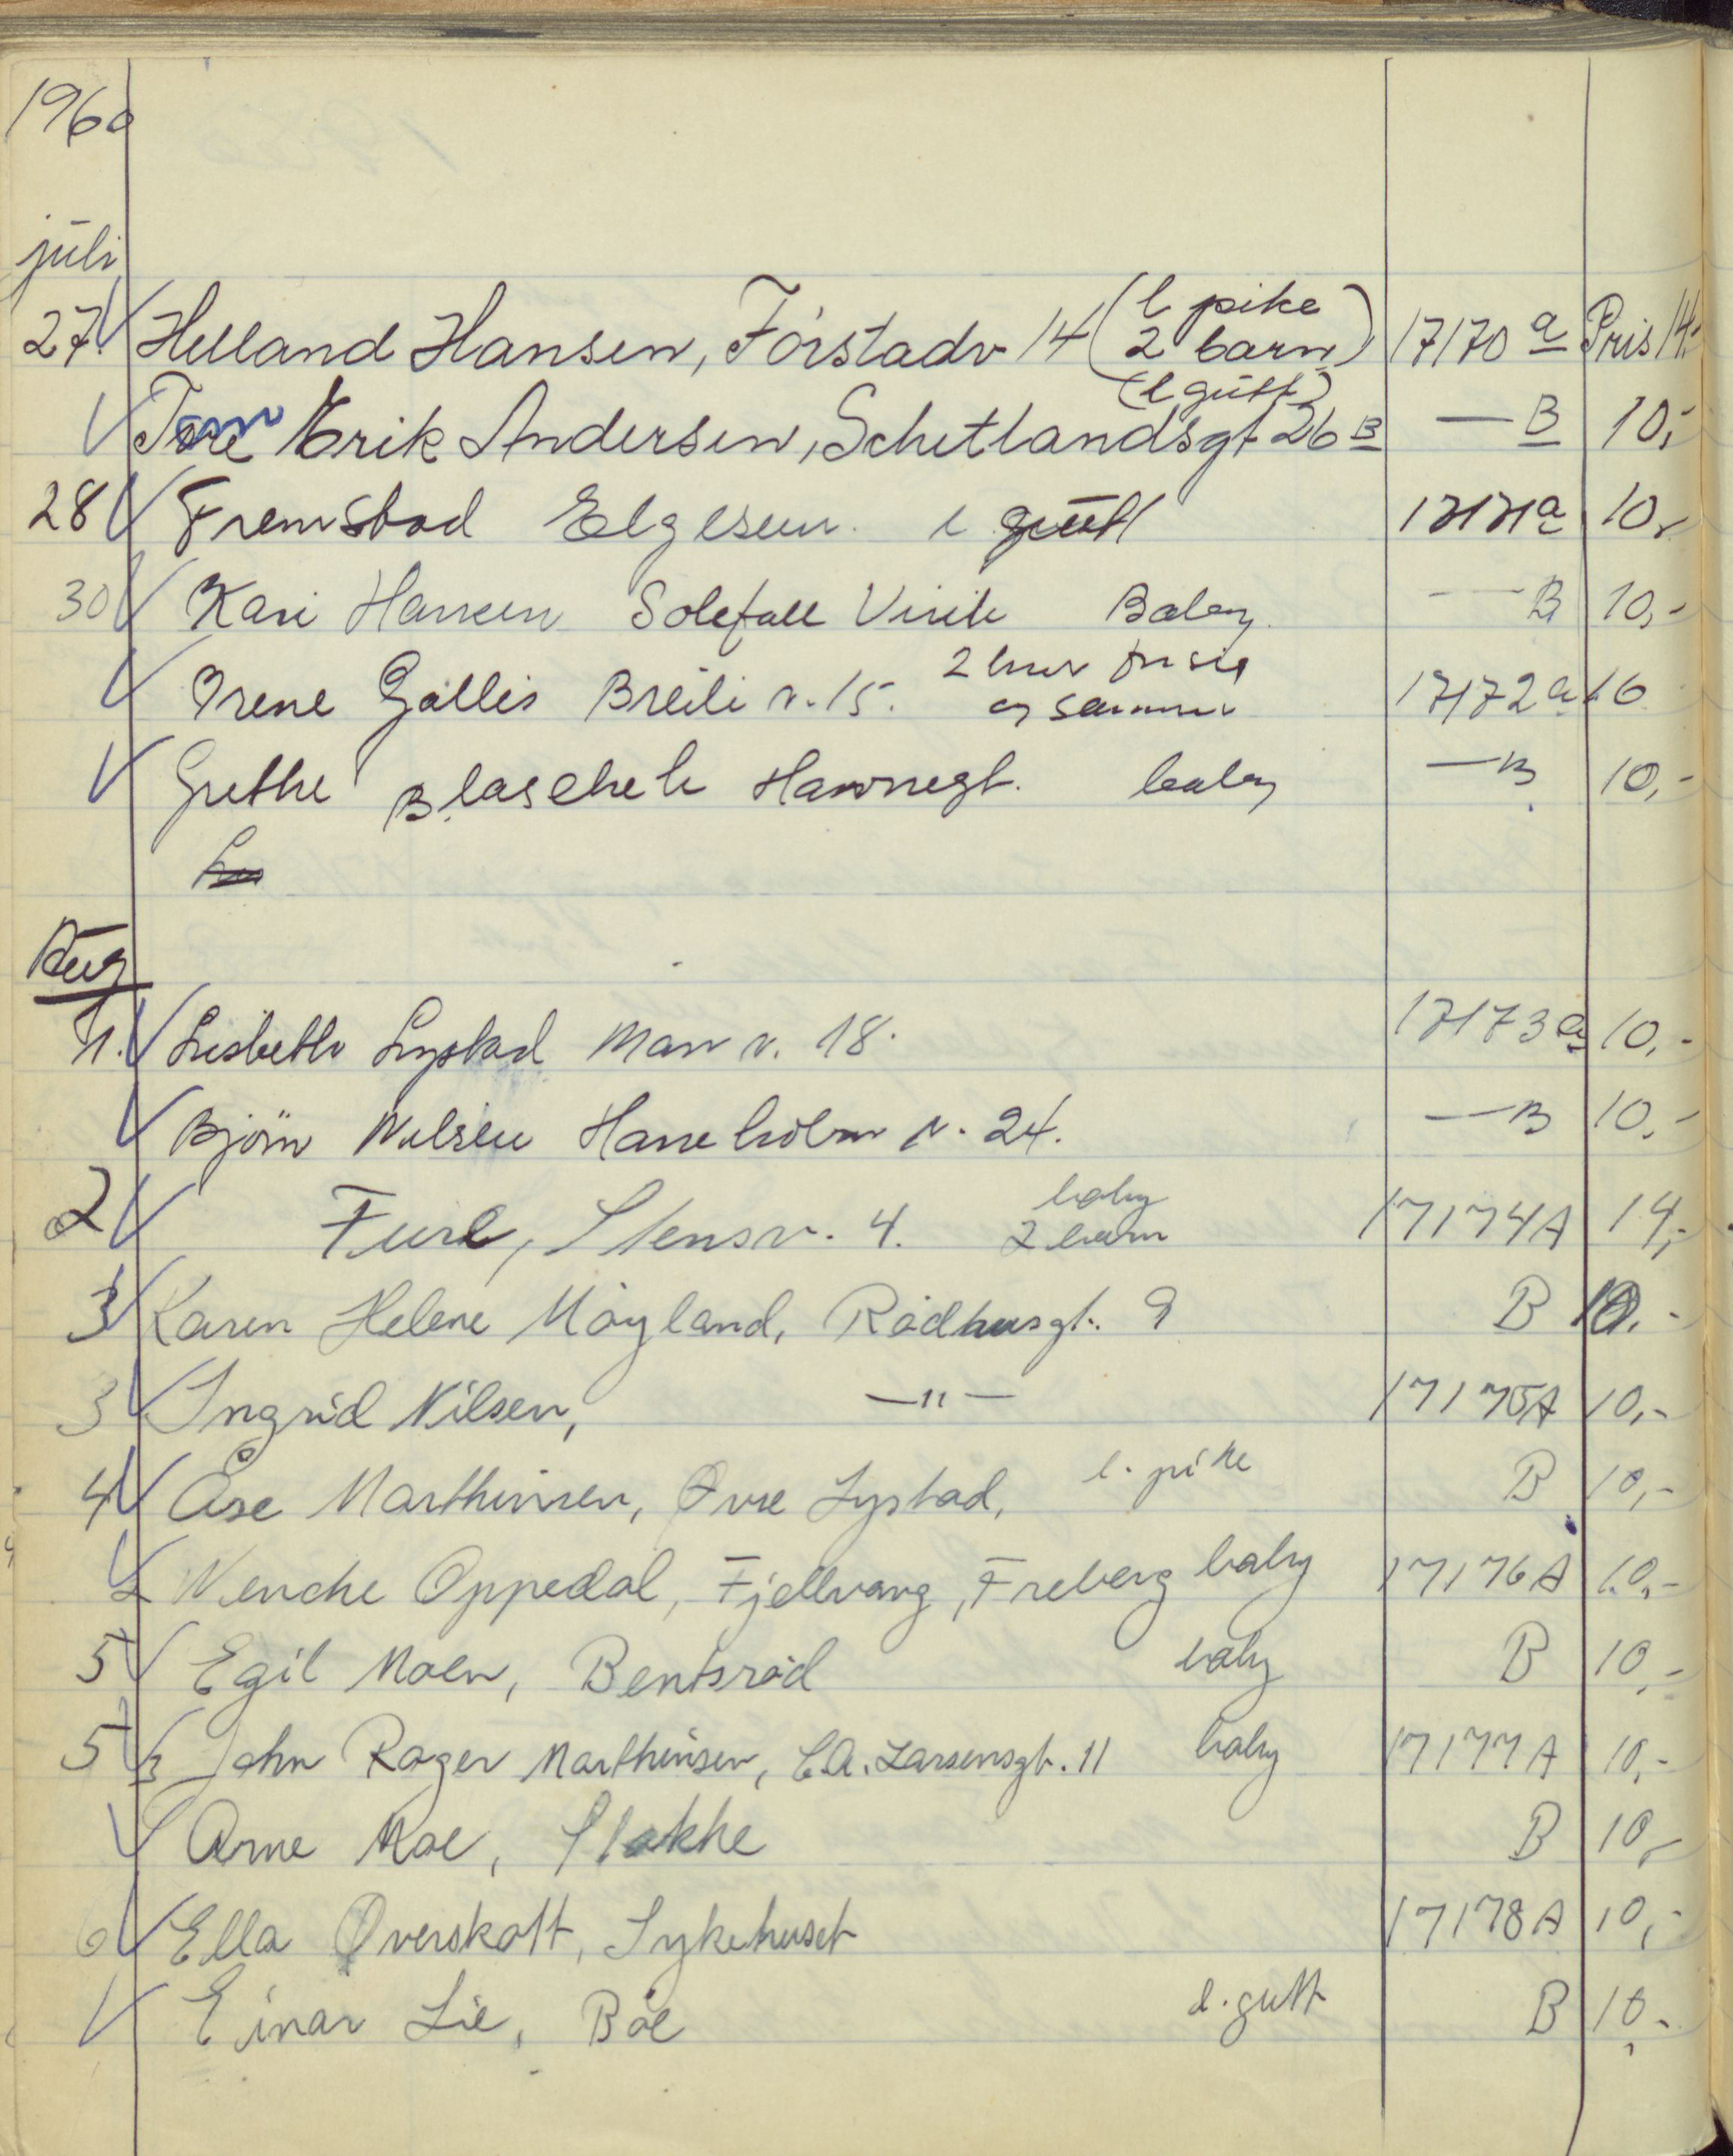 1960
juli
27. Helland Hansen, Förstadv 14 (l pike 2 barn) 17170 a Pris 14,-
Tom Erik Andersen, Schetlandsgt 26 B (l gutt) — B 10,-
28 Fremstad Elgesem. l gutt 17171a 10,-
30 Kari Hansen Solefall Virik Baby — B 10,-
Irene Gallis Breili v. 15. 2 hver for sig og sammen 17172a 16
Grethe Blaschek Havnegt. baby — B 10,-
Aug
1. Lisbeth Lystad Mar v. 18. 17173a 10,-
Björn Nilsen Haneholm v. 24. — B 10,-
2 Furl, Stensv. 4. baby 2 barn 17174A 14,-
3 Karen Helene Möyland, Rådhusgt. 9 B 10.-
3 Ingrid Nilsen, —"— 17175A 10,-
4 Åse Marthinsen, Øvre Lystad, l. pike B 10,-
Wenche Oppedal, Fjellvang, Freberg baby 17176A 10,-
5 Egil Moen, Bentsröd baby B 10,-
5 John Roger Marthinsen, C.A. Larsensgt. 11 baby 17177A 10,-
Arne Moe, Stokke B 10,-
6 Ella Overskott, Sykehuset 17178A 10,-
Einar Lie, Böe l. gutt B 10,-